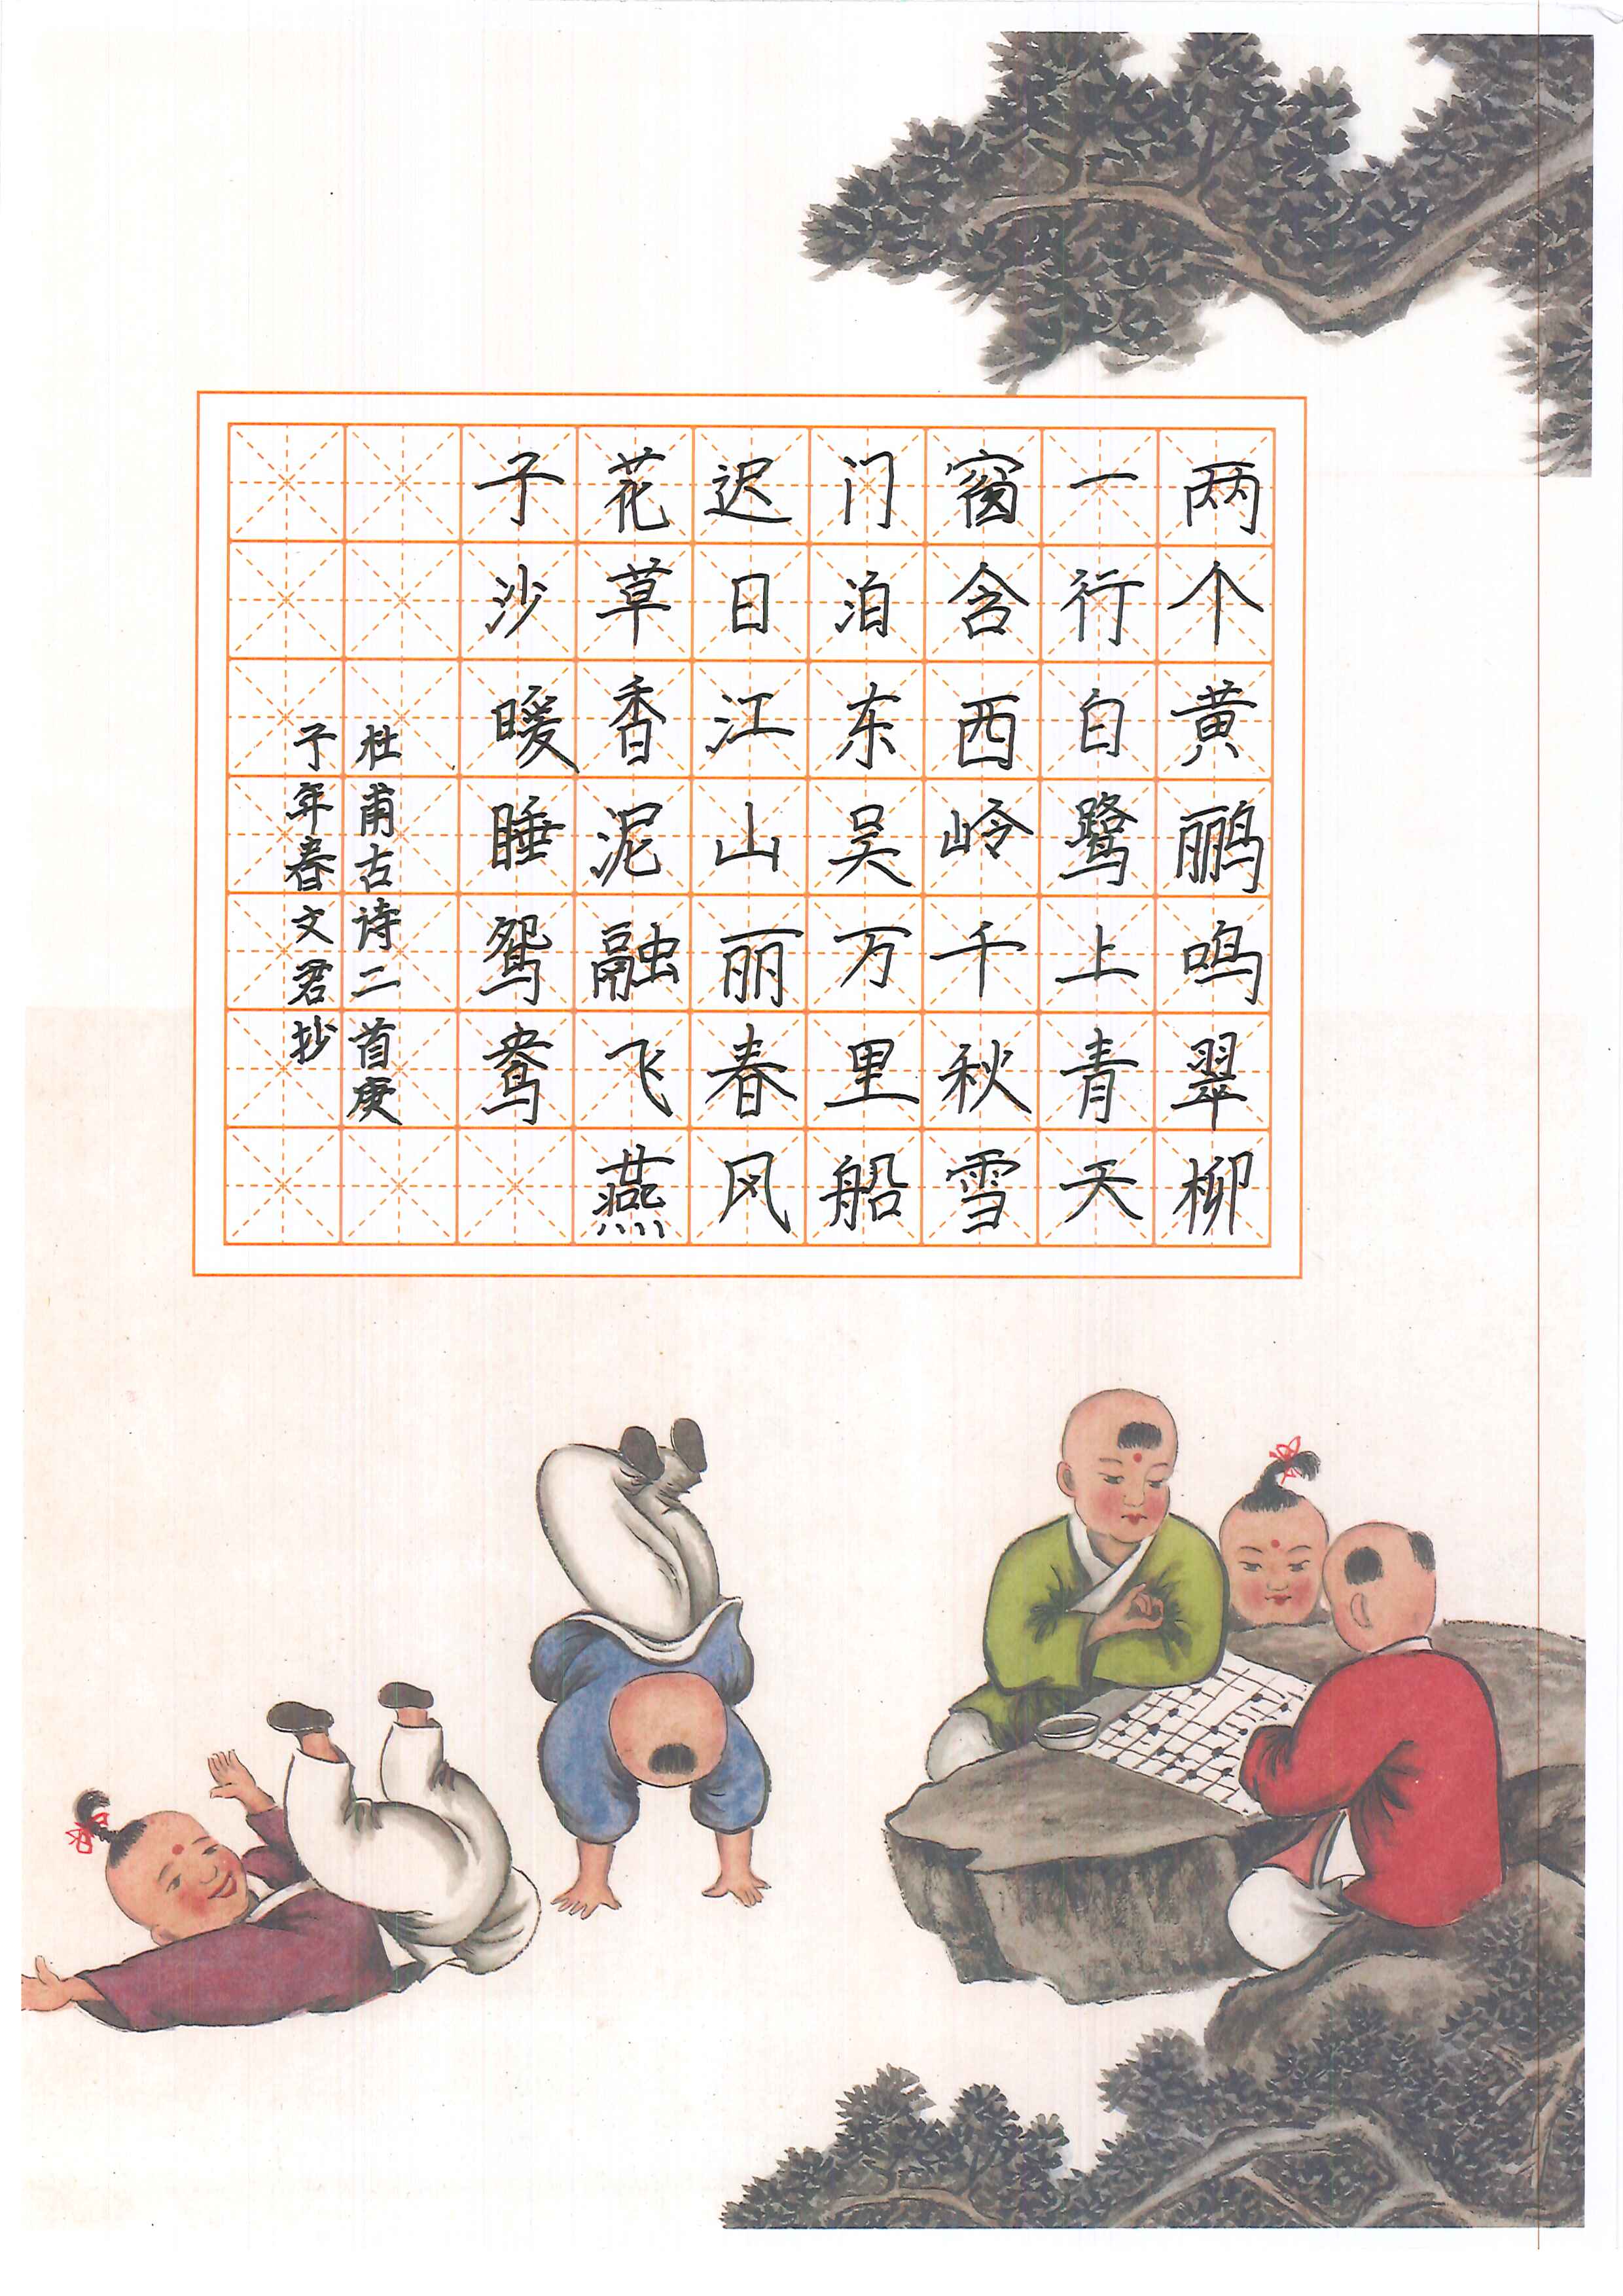 两个黄鹂鸣翠柳
一行白鹭上青天
窗含西岭千秋雪
门泊东吴万里船
迟日江山丽春风
花草香泥融飞燕
子沙暖睡鸳鸯
杜甫古诗二首庚
子年春文君抄